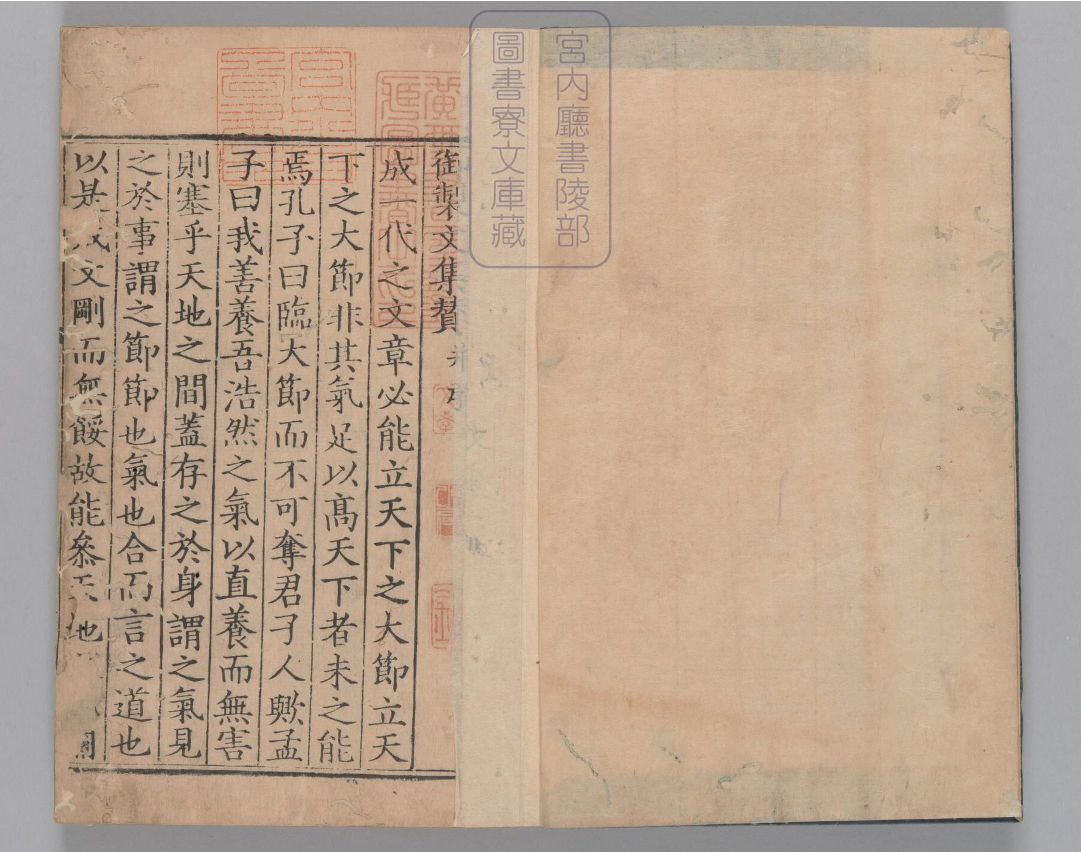 宮內廳書陵部
圖書寮文庫藏
御製文集贊并序
成一代之文章必能立天下之大節立天
下之大節非其氣足以高天下者未之能
焉孔子曰臨大節而不可奪君子人歟孟
子曰我善養吾浩然之氣以直養而無害
則塞乎天地之間蓋存之於身謂之氣見
之於事謂之節節也氣也合而言之道也
以是成文剛而無餒故能參天地